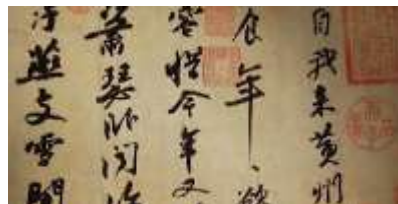 自我來黃州
食年、欲
容惜今年又
蕭瑟卧聞海
汙燕支雪闇